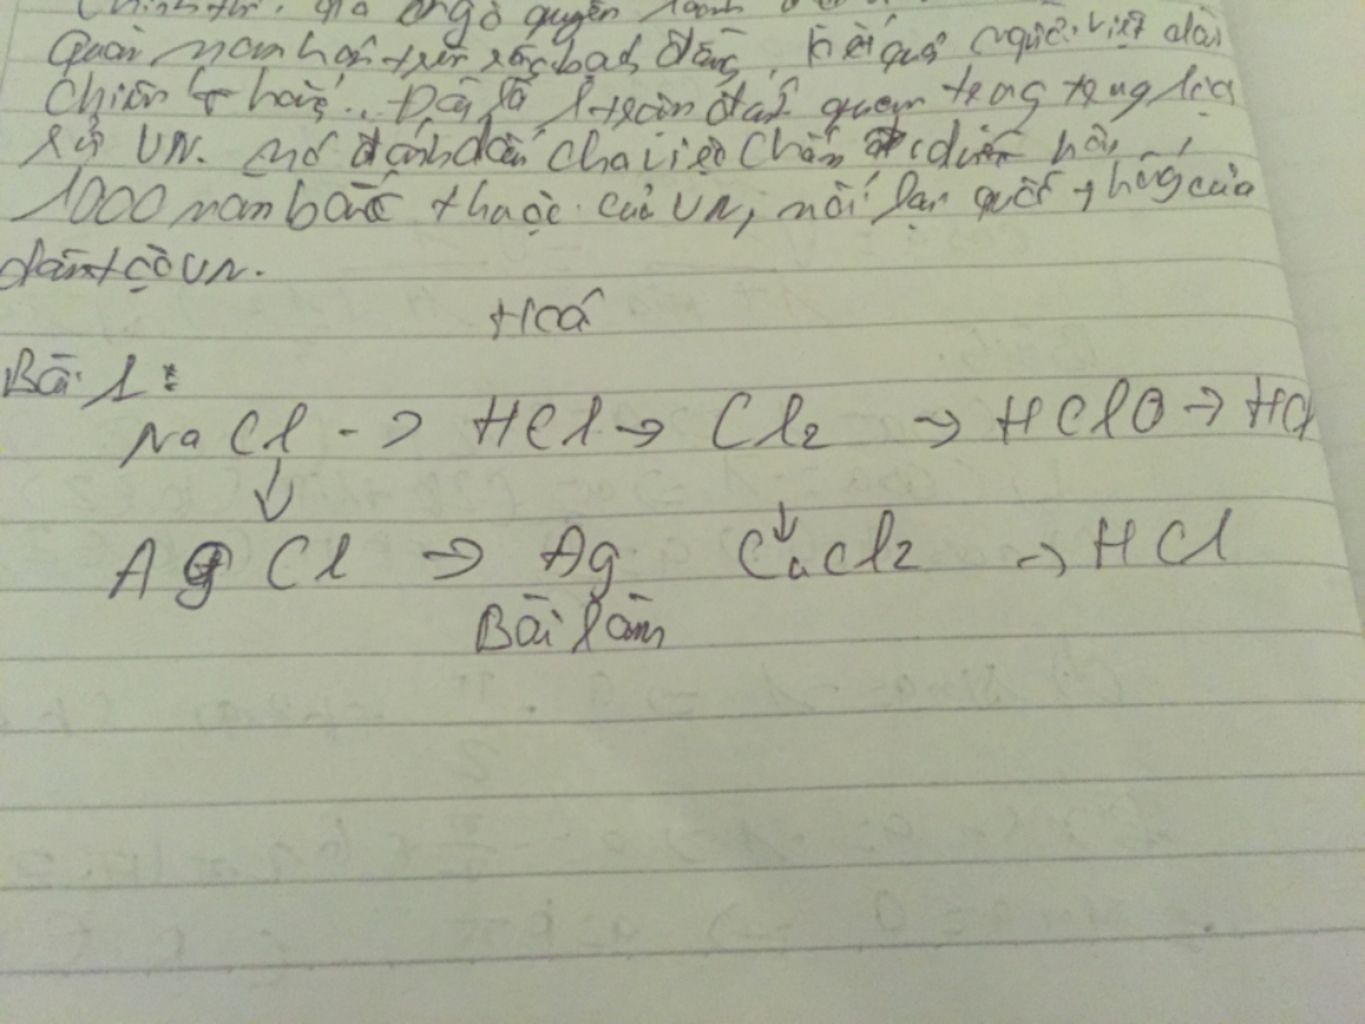 ngô quyền
quân nam hán trên sông bạch đằng, kết quả người việt dài
chiến thắng.. Đây là 1 trận đất quan trong tong lịch
sử VN. nó đánh dấu cha việc chấm dứt hơn
1000 nam bắc thuộc của VN, nối lại quốc thống của
dân tộc VN.
Hoá
Bài 1:
NaCl -> HCl -> Cl2 -> HClO -> HCl
↓
AgCl -> Ag CuCl2 -> HCl
Bài làm